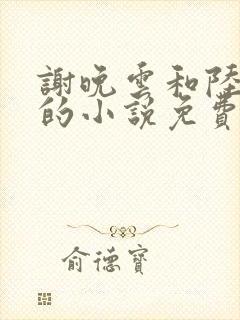 謝晚雲和陸
的小說免費
俞德寶